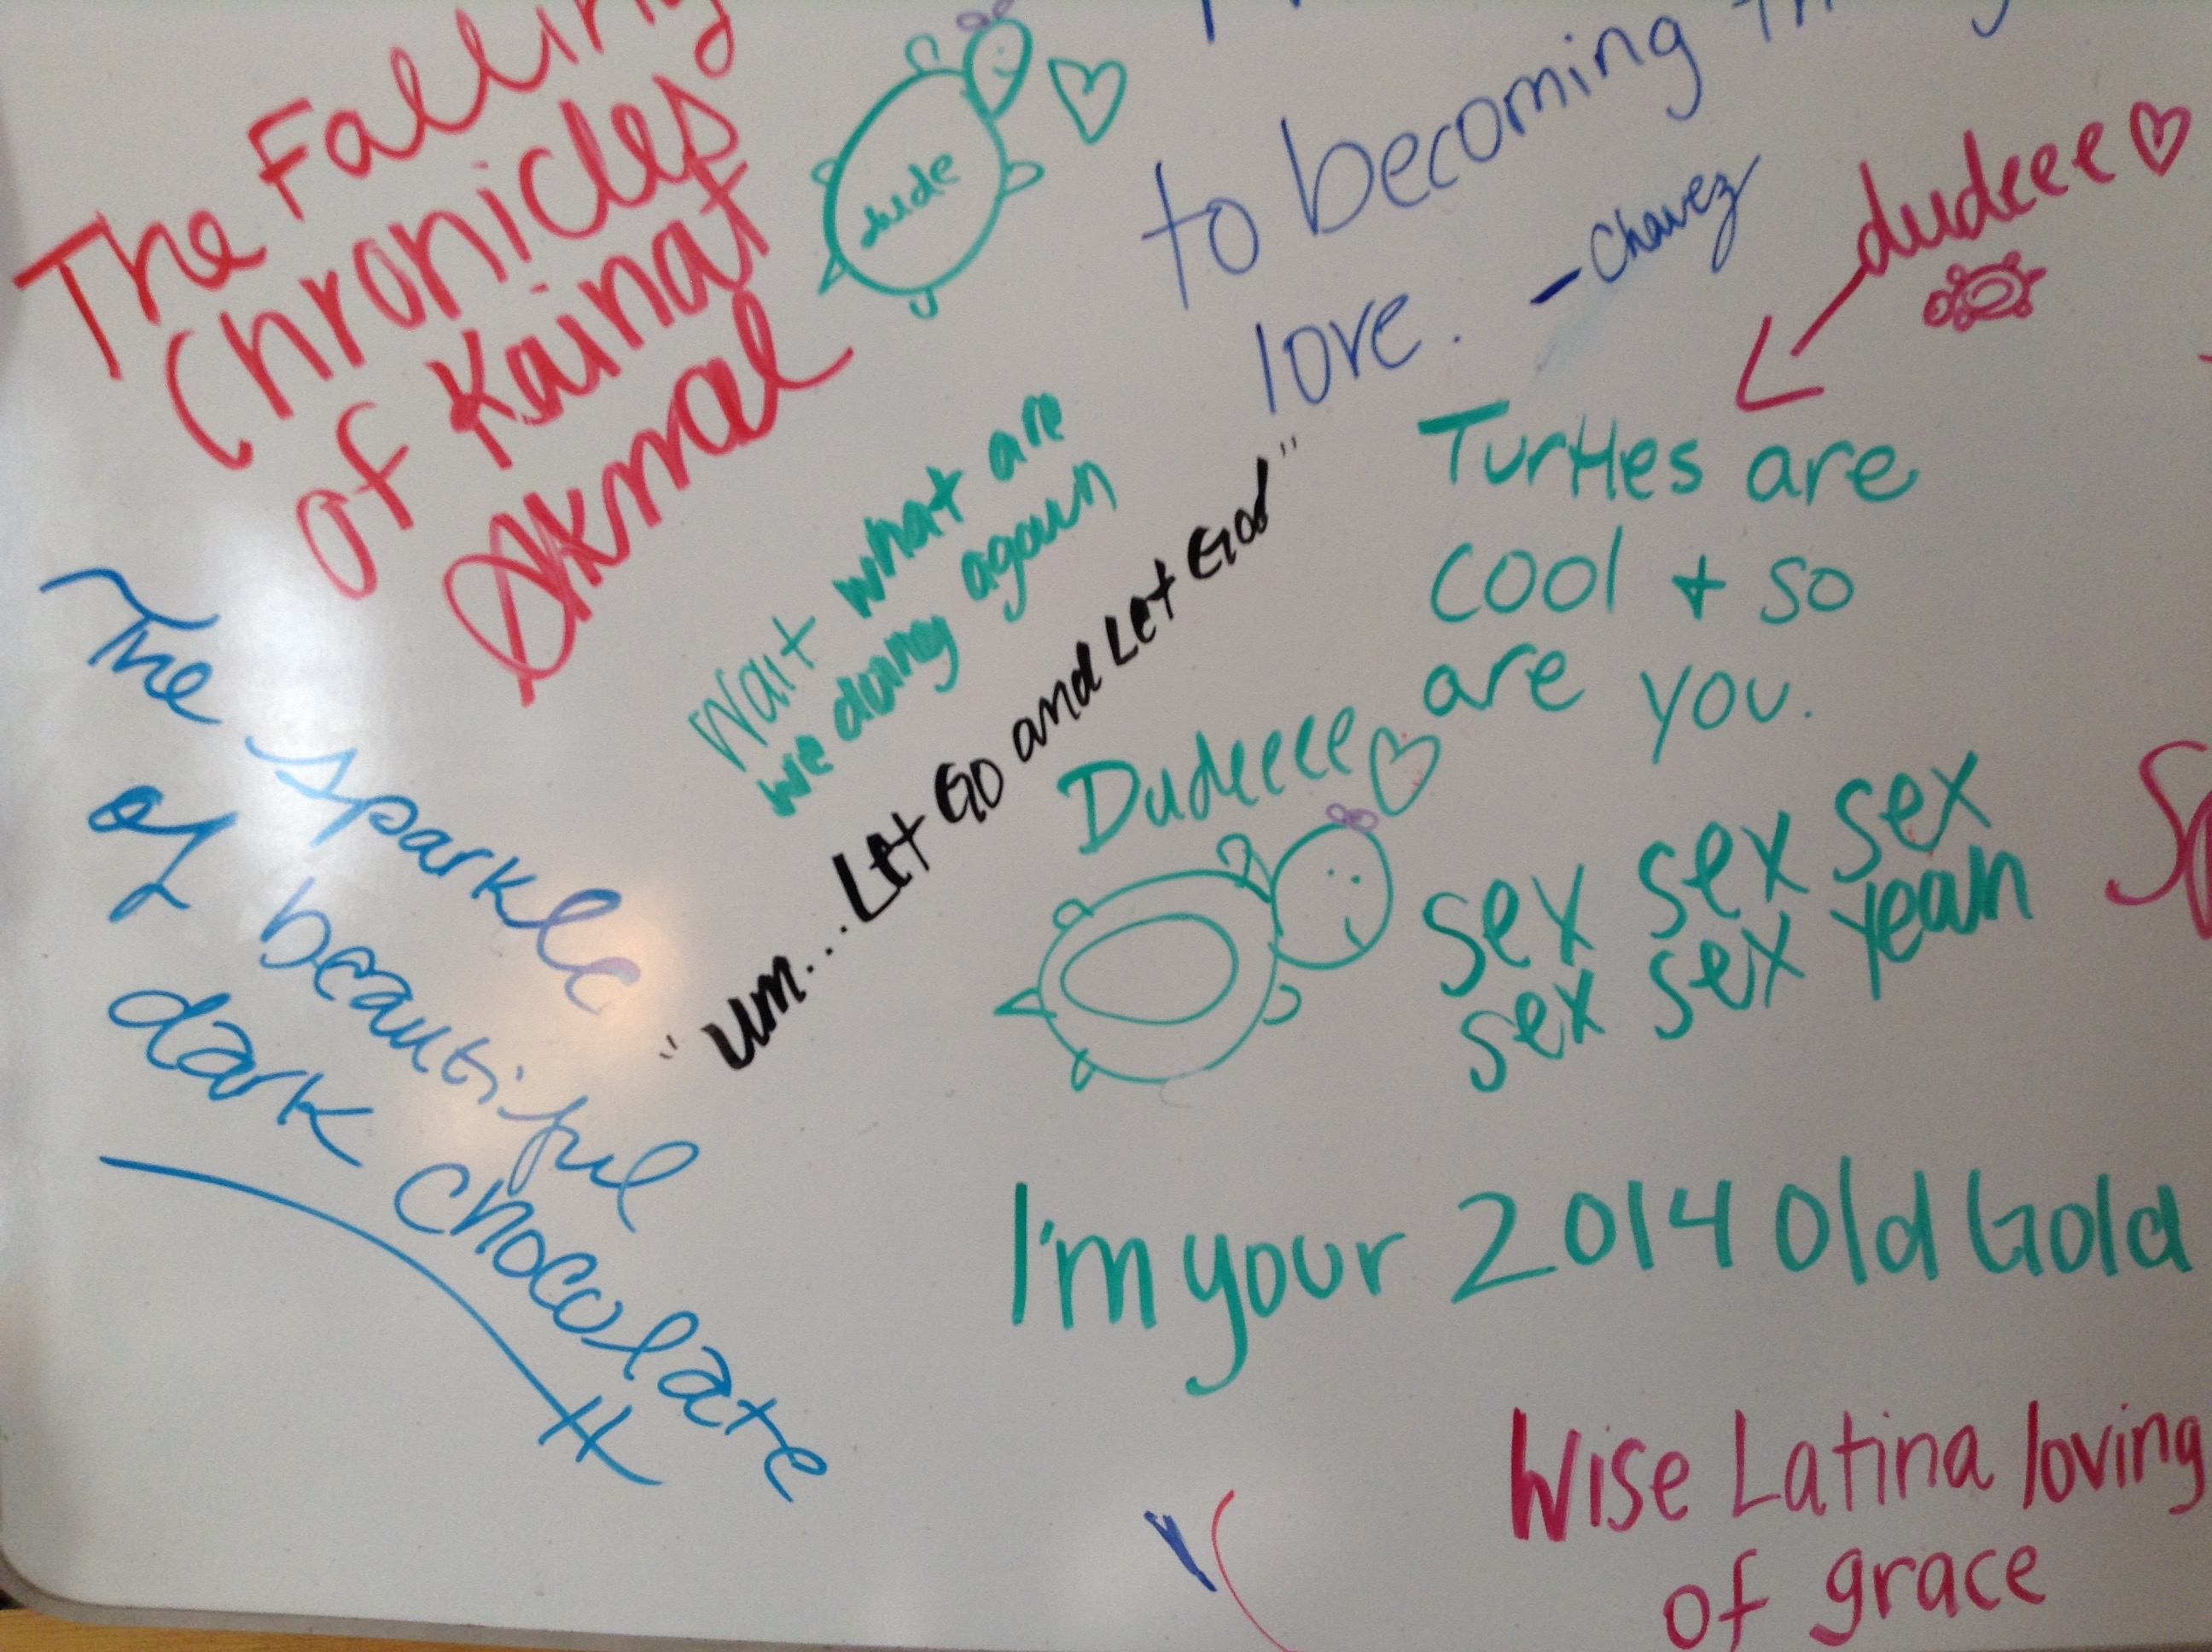 The Falling
Chronicles
of Kainat
Akmal
dude
to becoming
love.
-Chavez
dudeee
Turtles are
cool + so
are you.
Wait what are
we doing again
"um...Let Go and Let God"
Dudeeee
sex sex sex
sex sex yeah
The Sparkle
of beautiful
dark chocolate
I'm your 2014 Old Gold
Wise Latina loving
of grace